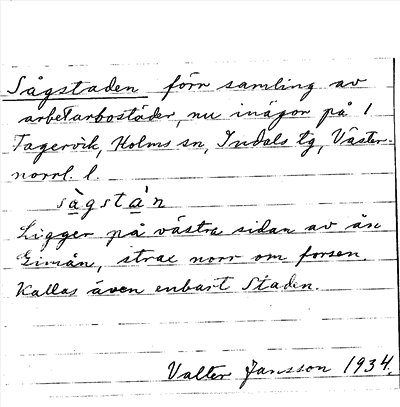 Sågstaden förr samling av
arbetarbostäder, nu inägor på 1
Fagervik, Holms sn, Indals tg, Väster-
norrl. l.
sågstàn
Ligger på västra sidan av ån
Gimån, strax norr om forsen.
Kallas även enbart Staden.
Valter Jansson 1934.